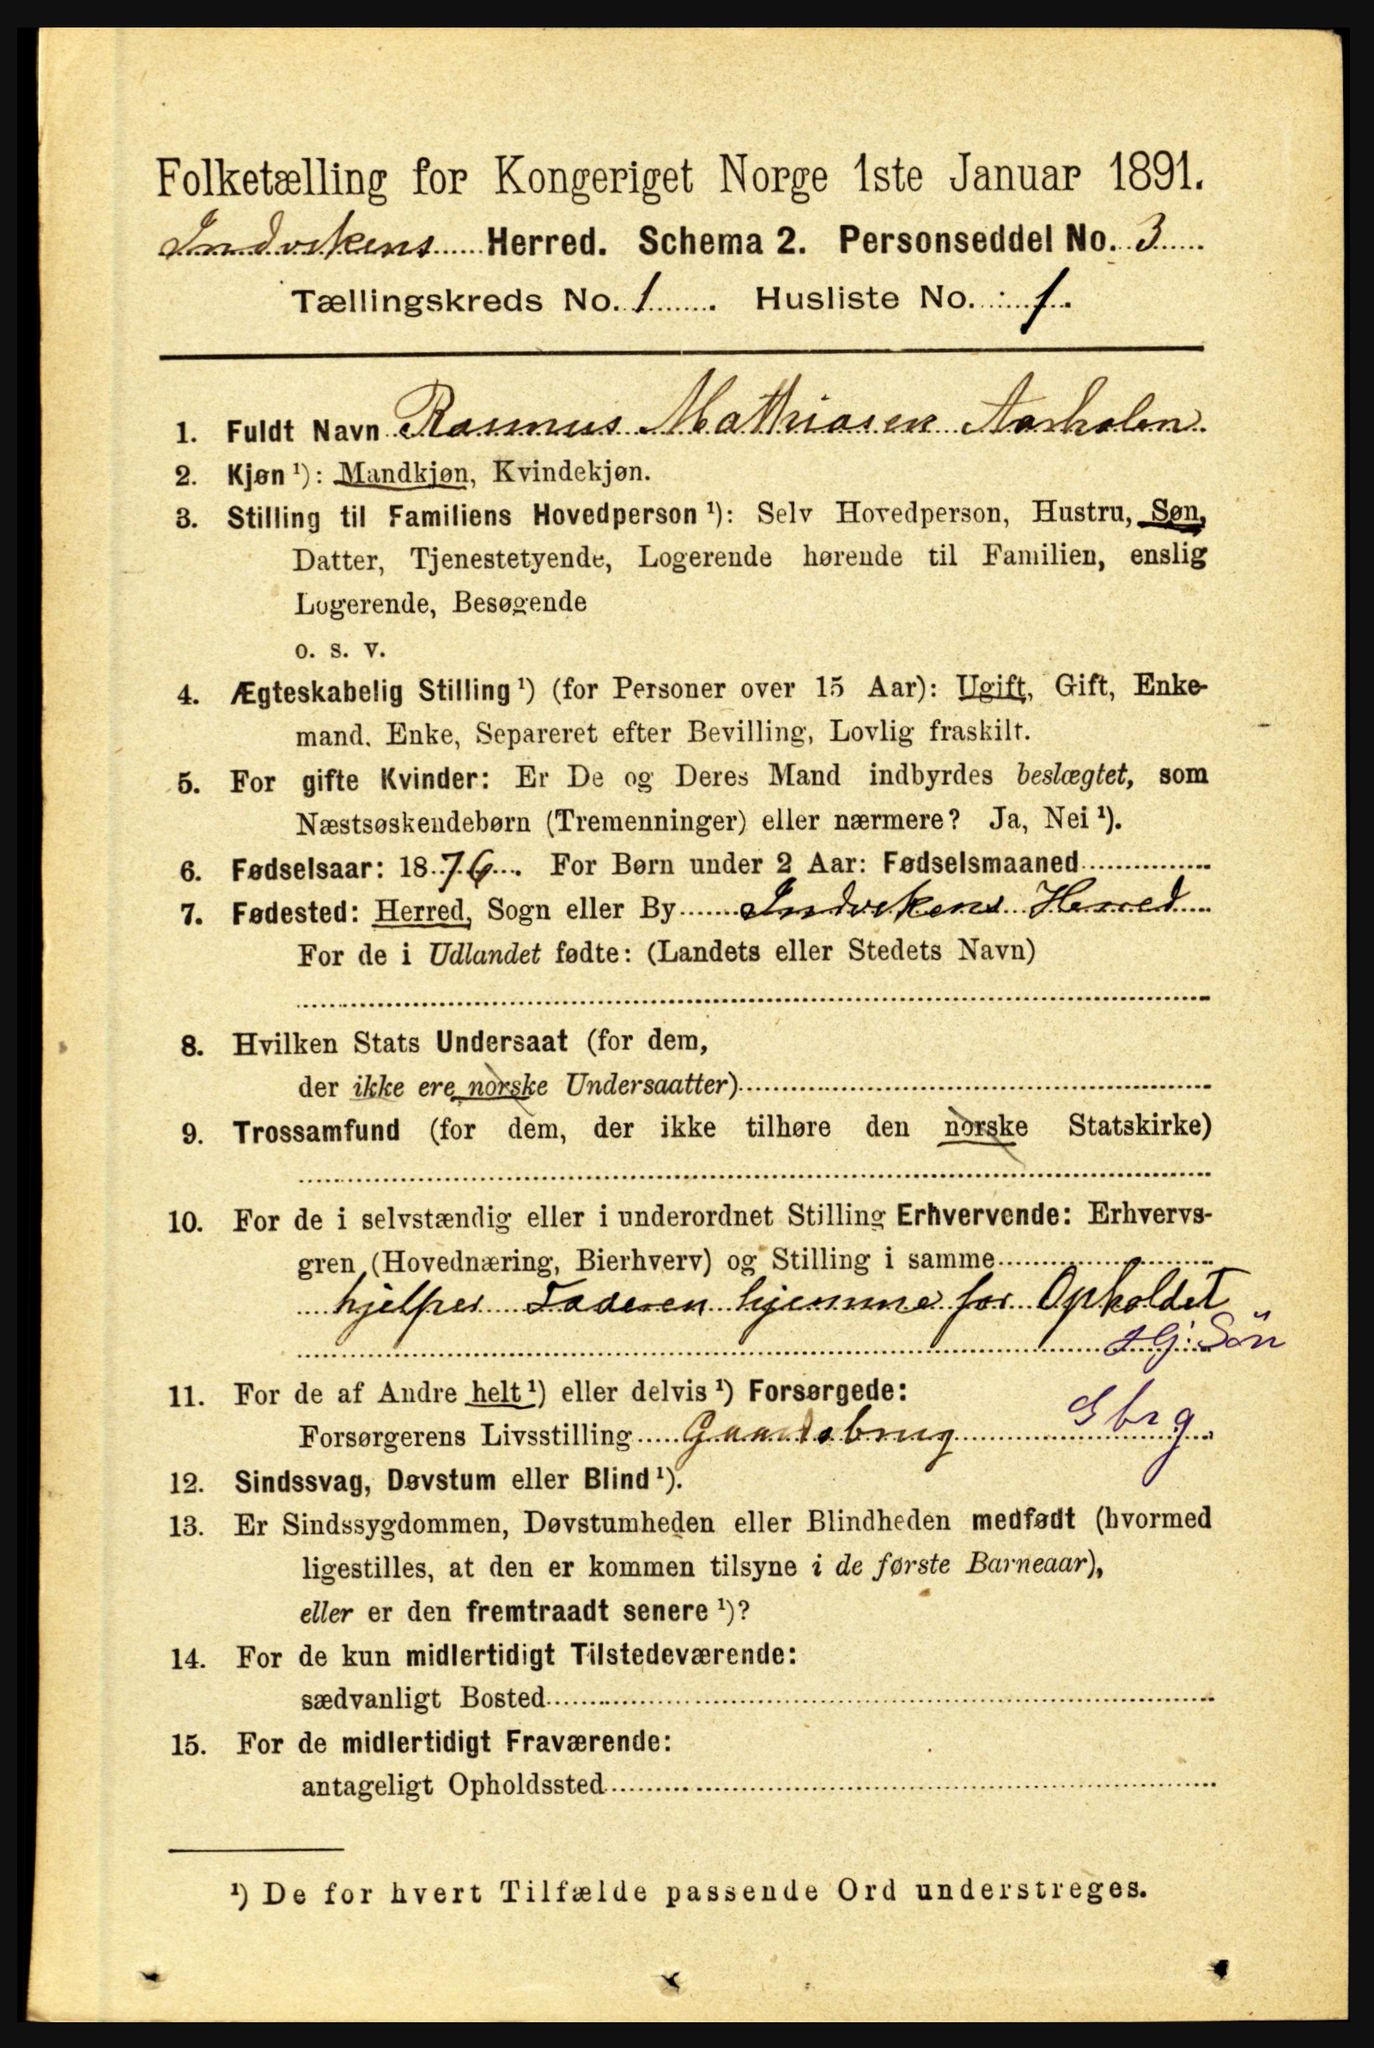 Folketælling for Kongeriget Norge 1ste Januar 1891.
Indvikens Herred. Schema 2. Personseddel No. 3
Tællingskreds No. 1. Husliste No. 1.
1. Fuldt Navn Rasmus Mathiasen Aarholen.
2. Kjøn ¹): Mandkjøn, Kvindekjøn.
3. Stilling til Familiens Hovedperson ¹): Selv Hovedperson, Hustru, Søn,
Datter, Tjenestetyende, Logerende hørende til Familien, enslig
Logerende, Besøgende
o. s. v.
4. Ægteskabelig Stilling ¹) (for Personer over 15 Aar): Ugift, Gift, Enke-
mand, Enke, Separeret efter Bevilling, Lovlig fraskilt.
5. For gifte Kvinder: Er De og Deres Mand indbyrdes beslægtet, som
Næstsøskendebørn (Tremenninger) eller nærmere? Ja, Nei ¹).
6. Fødselsaar: 1876. For Børn under 2 Aar: Fødselsmaaned
7. Fødested: Herred, Sogn eller By Indvikens Herred
For de i Udlandet fødte: (Landets eller Stedets Navn)
8. Hvilken Stats Undersaat (for dem,
der ikke ere norske Undersaatter)
9. Trossamfund (for dem, der ikke tilhøre den norske Statskirke)
10. For de i selvstændig eller i underordnet Stilling Erhvervende: Erhvervs-
gren (Hovednæring, Bierhverv) og Stilling i samme
hjelper Faderen hjemme for Opholdet
Hj: Sön
11. For de af Andre helt ¹) eller delvis ¹) Forsørgede:
Forsørgerens Livsstilling Gaardsbrug Gbrg
12. Sindssvag, Døvstum eller Blind ¹).
13. Er Sindssygdommen, Døvstumheden eller Blindheden medfødt (hvormed
ligestilles, at den er kommen tilsyne i de første Barneaar),
eller er den fremtraadt senere ¹)?
14. For de kun midlertidigt Tilstedeværende:
sædvanligt Bosted
15. For de midlertidigt Fraværende:
antageligt Opholdssted
¹) De for hvert Tilfælde passende Ord understreges.